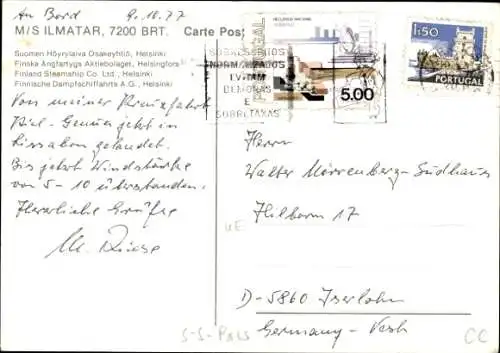 An Bord 9.10.77
M/S ILMATAR, 7200 BRT. Carte Post
Suomen Höyrylaiva Osakeyhtiö, Helsinki
Finska Ångfartygs Aktiebolaget, Helsingfors
Finland Steamship Co. Ltd., Helsinki
Finnische Dampfschiffahrts A.G., Helsinki
Von meiner Kreuzfahrt
Kiel-Genua jetzt in
Lissabon gelandet.
Bis jetzt Windstärke
von 5-10 überstanden.
Herzliche Grüße
PORTUGAL
5.00
1$50
PORTUGAL
SOBRESCRITOS
NORMALIZADOS
EVITAM
DEMORAS
E
SOBRETAXAS
Herrn
Walter Mörrenberg-Südhaus
Hilborn 17
D-5860 Iserlohn
Germany-West
S-S-Pols
CC